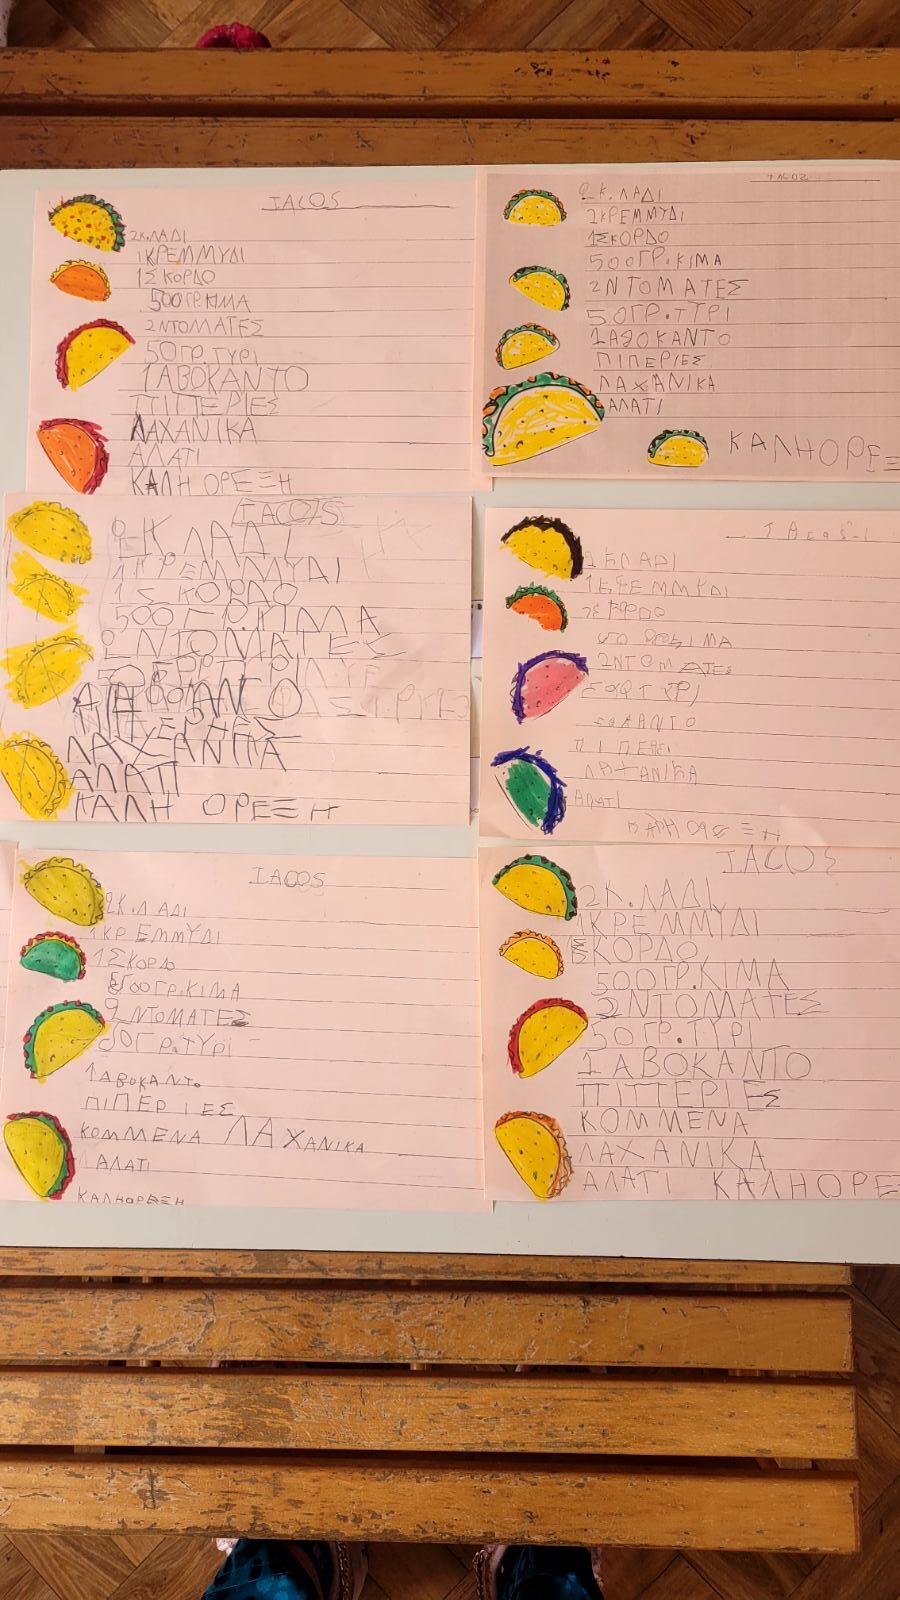 TACOS
2Κ.ΛΑΔΙ
1ΚΡΕΜΜΥΔΙ
1ΣΚΟΡΔΟ
500ΓΡ.ΚΙΜΑ
2ΝΤΟΜΑΤΕΣ
50ΓΡ.ΤΥΡΙ
1ΑΒΟΚΑΝΤΟ
ΠΙΠΕΡΙΕΣ
ΛΑΧΑΝΙΚΑ
ΑΛΑΤΙ
ΚΑΛΗ ΟΡΕΞΗ
TACOS
2Κ.ΛΑΔΙ
2ΚΡΕΜΜΥΔΙ
1ΣΚΟΡΔΟ
500ΓΡ.ΚΙΜΑ
2ΝΤΟΜΑΤΕΣ
50ΓΡ.ΤΥΡΙ
1ΑΒΟΚΑΝΤΟ
ΠΙΠΕΡΙΕΣ
ΛΑΧΑΝΙΚΑ
ΑΛΑΤΙ
ΚΑΛΗΟΡΕΞ
TACOS
2Κ ΛΑΔΙ
1ΚΡΕΜΜΥΔΙ
1ΣΚΟΡΔΟ
500ΓΡ.ΚΙΜΑ
2ΝΤΟΜΑΤΕΣ
ΛΑΧΑΝΙΚΑ
ΑΛΑΤΙ
ΚΑΛΗ ΟΡΕΞΗ
TACOS
ΛΑΔΙ
2ΝΤΟΜΑΤΕΣ
ΛΑΧΑΝΙΚΑ
ΑΛΑΤΙ
TACOS
2Κ.ΛΑΔΙ
1ΚΡΕΜΜΥΔΙ
1ΣΚΟΡΔΟ
500ΓΡ.ΚΙΜΑ
2ΝΤΟΜΑΤΕΣ
50ΓΡ.ΤΥΡΙ
1ΑΒΟΚΑΝΤΟ
ΠΙΠΕΡΙΕΣ
ΚΟΜΜΕΝΑ ΛΑΧΑΝΙΚΑ
ΑΛΑΤΙ
ΚΑΛΗΟΡΕΞΗ
TACOS
2Κ.ΛΑΔΙ
1ΚΡΕΜΜΥΔΙ
ΣΚΟΡΔΟ
500ΓΡ.ΚΙΜΑ
2ΝΤΟΜΑΤΕΣ
50ΓΡ.ΤΥΡΙ
1ΑΒΟΚΑΝΤΟ
ΠΙΠΕΡΙΕΣ
ΚΟΜΜΕΝΑ
ΛΑΧΑΝΙΚΑ
ΑΛΑΤΙ ΚΑΛΗΟΡΕ